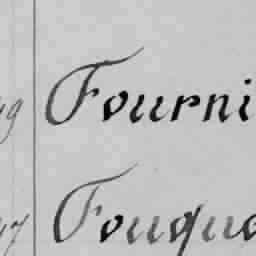 49 Fourni
47 Fouqua